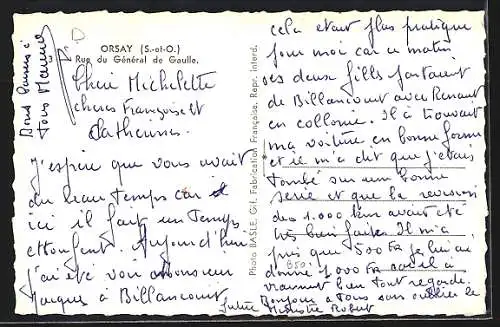 ORSAY (S.-et-O.)
3 Rue du Général de Gaulle.
Bons baisers à
tous Maurice
Chère Michelette
chères Françoise et
Catherine.
J'espère que vous avait
du beau temps car
ici il fait un temps
étouffant Aujourd'hui
j'ai été voir monsieur
Jacques à Billancourt
Photo BASLE, Gif. Fabrication Française. Repr. Interd.
cela etant plus pratique
pour moi car ce matin
ses deux fills partaient
de Billancourt avec Renaut
en collonne. Il à trouvait
ma voiture en bonne forme
et il m'a dit que j'étais
tombé sur une bonne
serie et que la revision
des 1.000 km avait été
très bien faites. Il m'a
pris que 500 FR je lui ai
donné 1000 FR
850
vraiment bien tout regardé.
Bonjour à Tous sans oublier le
Ministre Robert